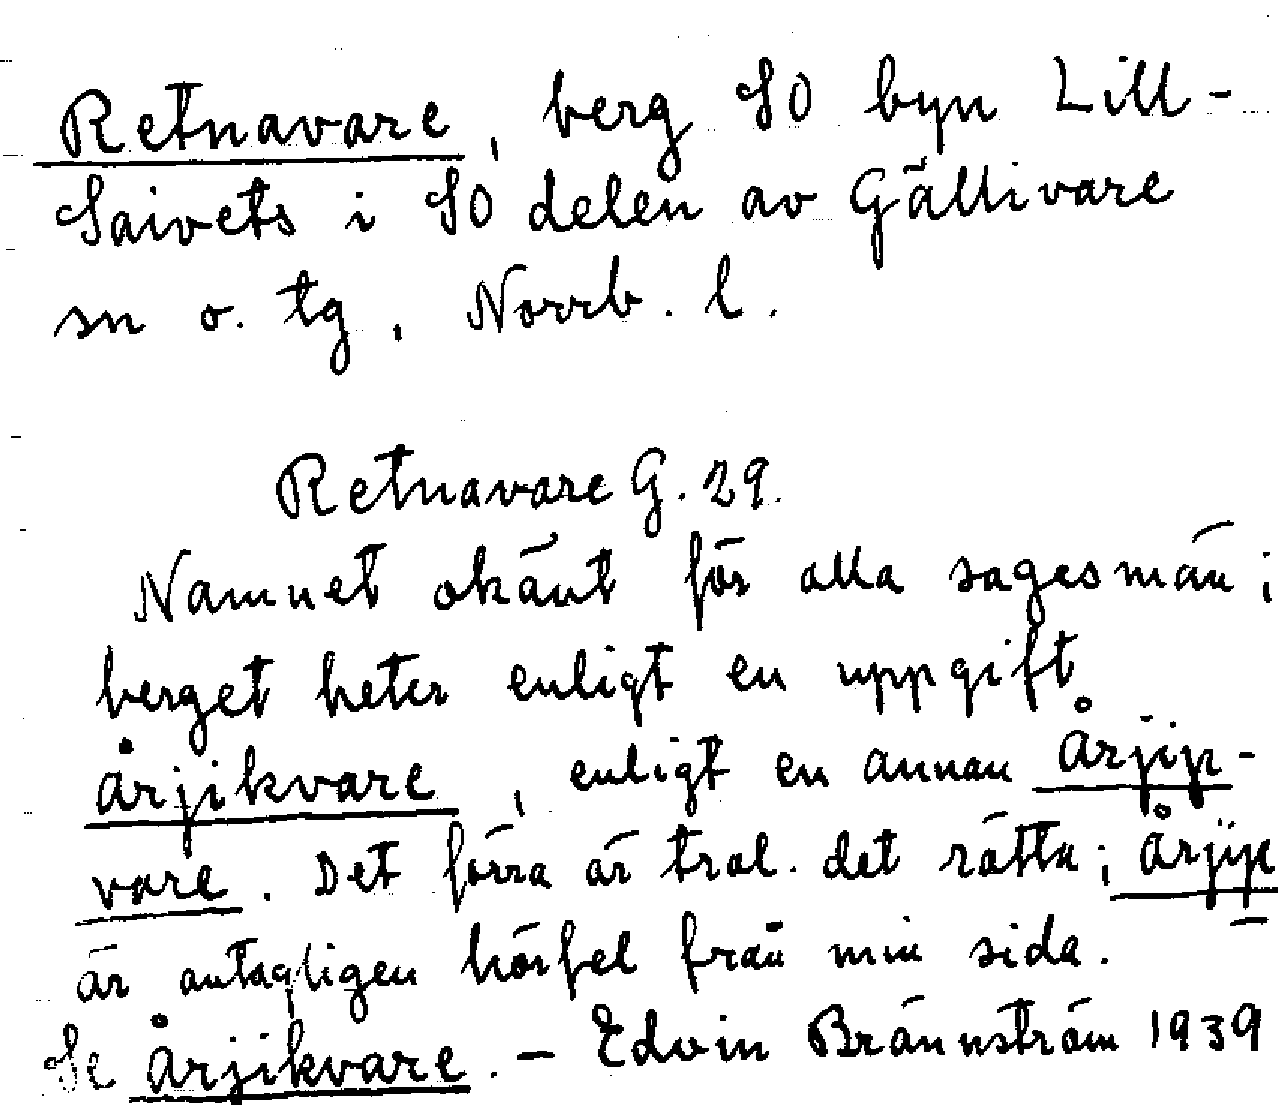 Retnavare, berg SO byn Lill-
Saivets i SO delen av Gällivare
sn o. tg, Norrb. l.
Retnavare G. 29.
Namnet okänt för alla sagesmän;
berget heter enligt en uppgift
Årjikvare, enligt en annan Årjip-
vare. Det förra är trol. det rätta; Årjip-
är antagligen hörfel från min sida.
Se Årjikvare. – Edvin Brännström 1939